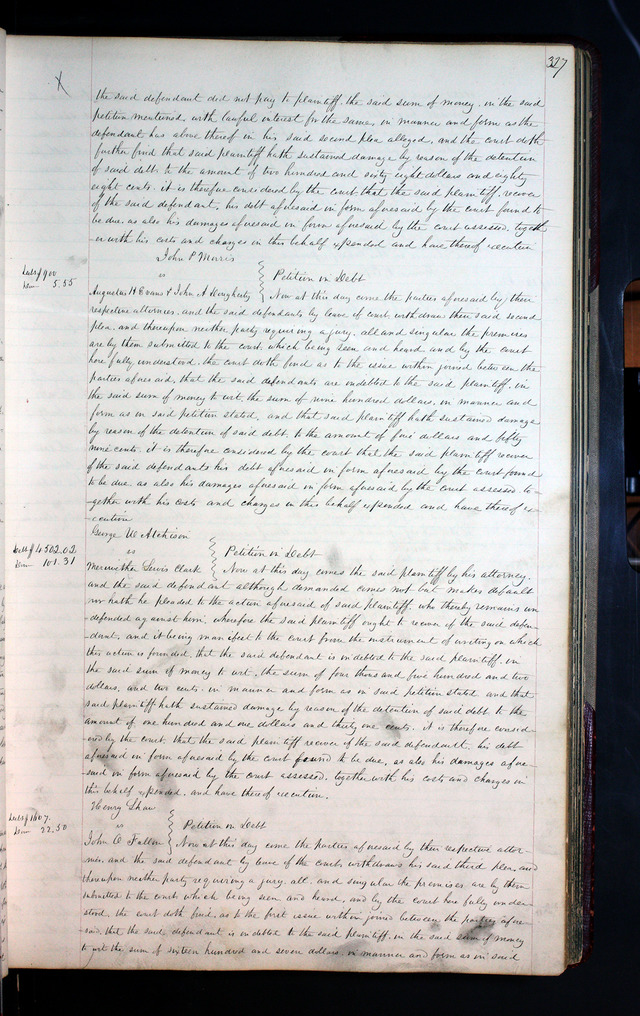 327
X
the said defendant did not pay to plaintiff the said sum of money, in the said
petition mentioned, with lawful interest for the same, in manner and form as the
defendant has above thereof in his said second plea alleged, and the court doth
further find that said plaintiff hath sustained damage by reason of the detention
of said debt to the amount of two hundred and sixty eight dollars and eighty
eight cents. it is therefore considered by the court that the said plaintiff, recover
of the said defendant, his debt aforesaid in form aforesaid by the court found to
be due, as also his damages aforesaid in form aforesaid by the court assessed, togeth
er with his costs and charges in this behalf expended and have thereof execution
John P Morris
Debt $900
Dam 5.55
vs
Petition in Debt
Augustus H Evans & John A Dougherty
Now at this day come the parties aforesaid by their
respective attornies, and the said defendants by leave of court withdraw their said second
plea, and thereupon neither party requiring a jury, all and singular the premises
are by them submitted to the court, which being seen and heard, and by the court
here fully understood, the court doth find as to the issue within joined between the
parties aforesaid, that the said defendants are indebted to the said plaintiff in
the said sum of money to wit the sum of nine hundred dollars, in manner and
form as in said petition stated, and that said plaintiff hath sustained damage
by reason of the detention of said debt, to the amount of five dollars and fifty
nine cents. it is therefore considered by the court that the said plaintiff recover
of the said defendants his debt aforesaid in form aforesaid by the court found
to be due as also his damages aforesaid in form aforesaid by the court assessed, to-
gether with his costs and charges in this behalf expended and have thereof ex-
ecution
George W Atchison
Debt $4502.02
Dam 101.31
vs
Petition in Debt
Meriwether Lewis Clark
Now at this day comes the said plaintiff by his attorney,
and the said defendant although demanded comes not but makes default
nor hath he pleaded to the action aforesaid of said plaintiff, who thereby remains un
defended against him, wherefore the said plaintiff ought to recover of the said defen-
dant, and it being manifest to the court from the instrument of writing on which
this action is founded, that the said defendant is indebted to the said plaintiff, in
the said sum of money to wit, the sum of four thousand five hundred and two
dollars, and two cents. in manner and form as in said petition stated and that
said plaintiff hath sustained damage by reason of the detention of said debt to the
amount of one hundred and one dollars and thirty one cents. it is therefore consid-
ered by the court, that the said plaintiff recover of the said defendant, his debt
aforesaid in form aforesaid by the court found to be due, as also his damages afore
said in form aforesaid by the court assessed, together with his costs and charges in
this behalf expended, and have thereof execution.
Henry Shaw
Debt $1607.
Dam 22.50
vs
Petition in Debt
John O Fallon
Now at this day come the parties aforesaid by their respective attor-
nies, and the said defendant by leave of the court, withdraws his said third plea, and
thereupon neither party requiring a jury, all and singular the premises are by them
submitted to the court which being seen and heard, and by the court here fully under
stood, the court doth find, as to the first issue within joined between the parties afore
said, that the said defendant is indebted to the said plaintiff, in the said sum of money
to wit the sum of sixteen hundred and seven dollars, in manner and form as in said